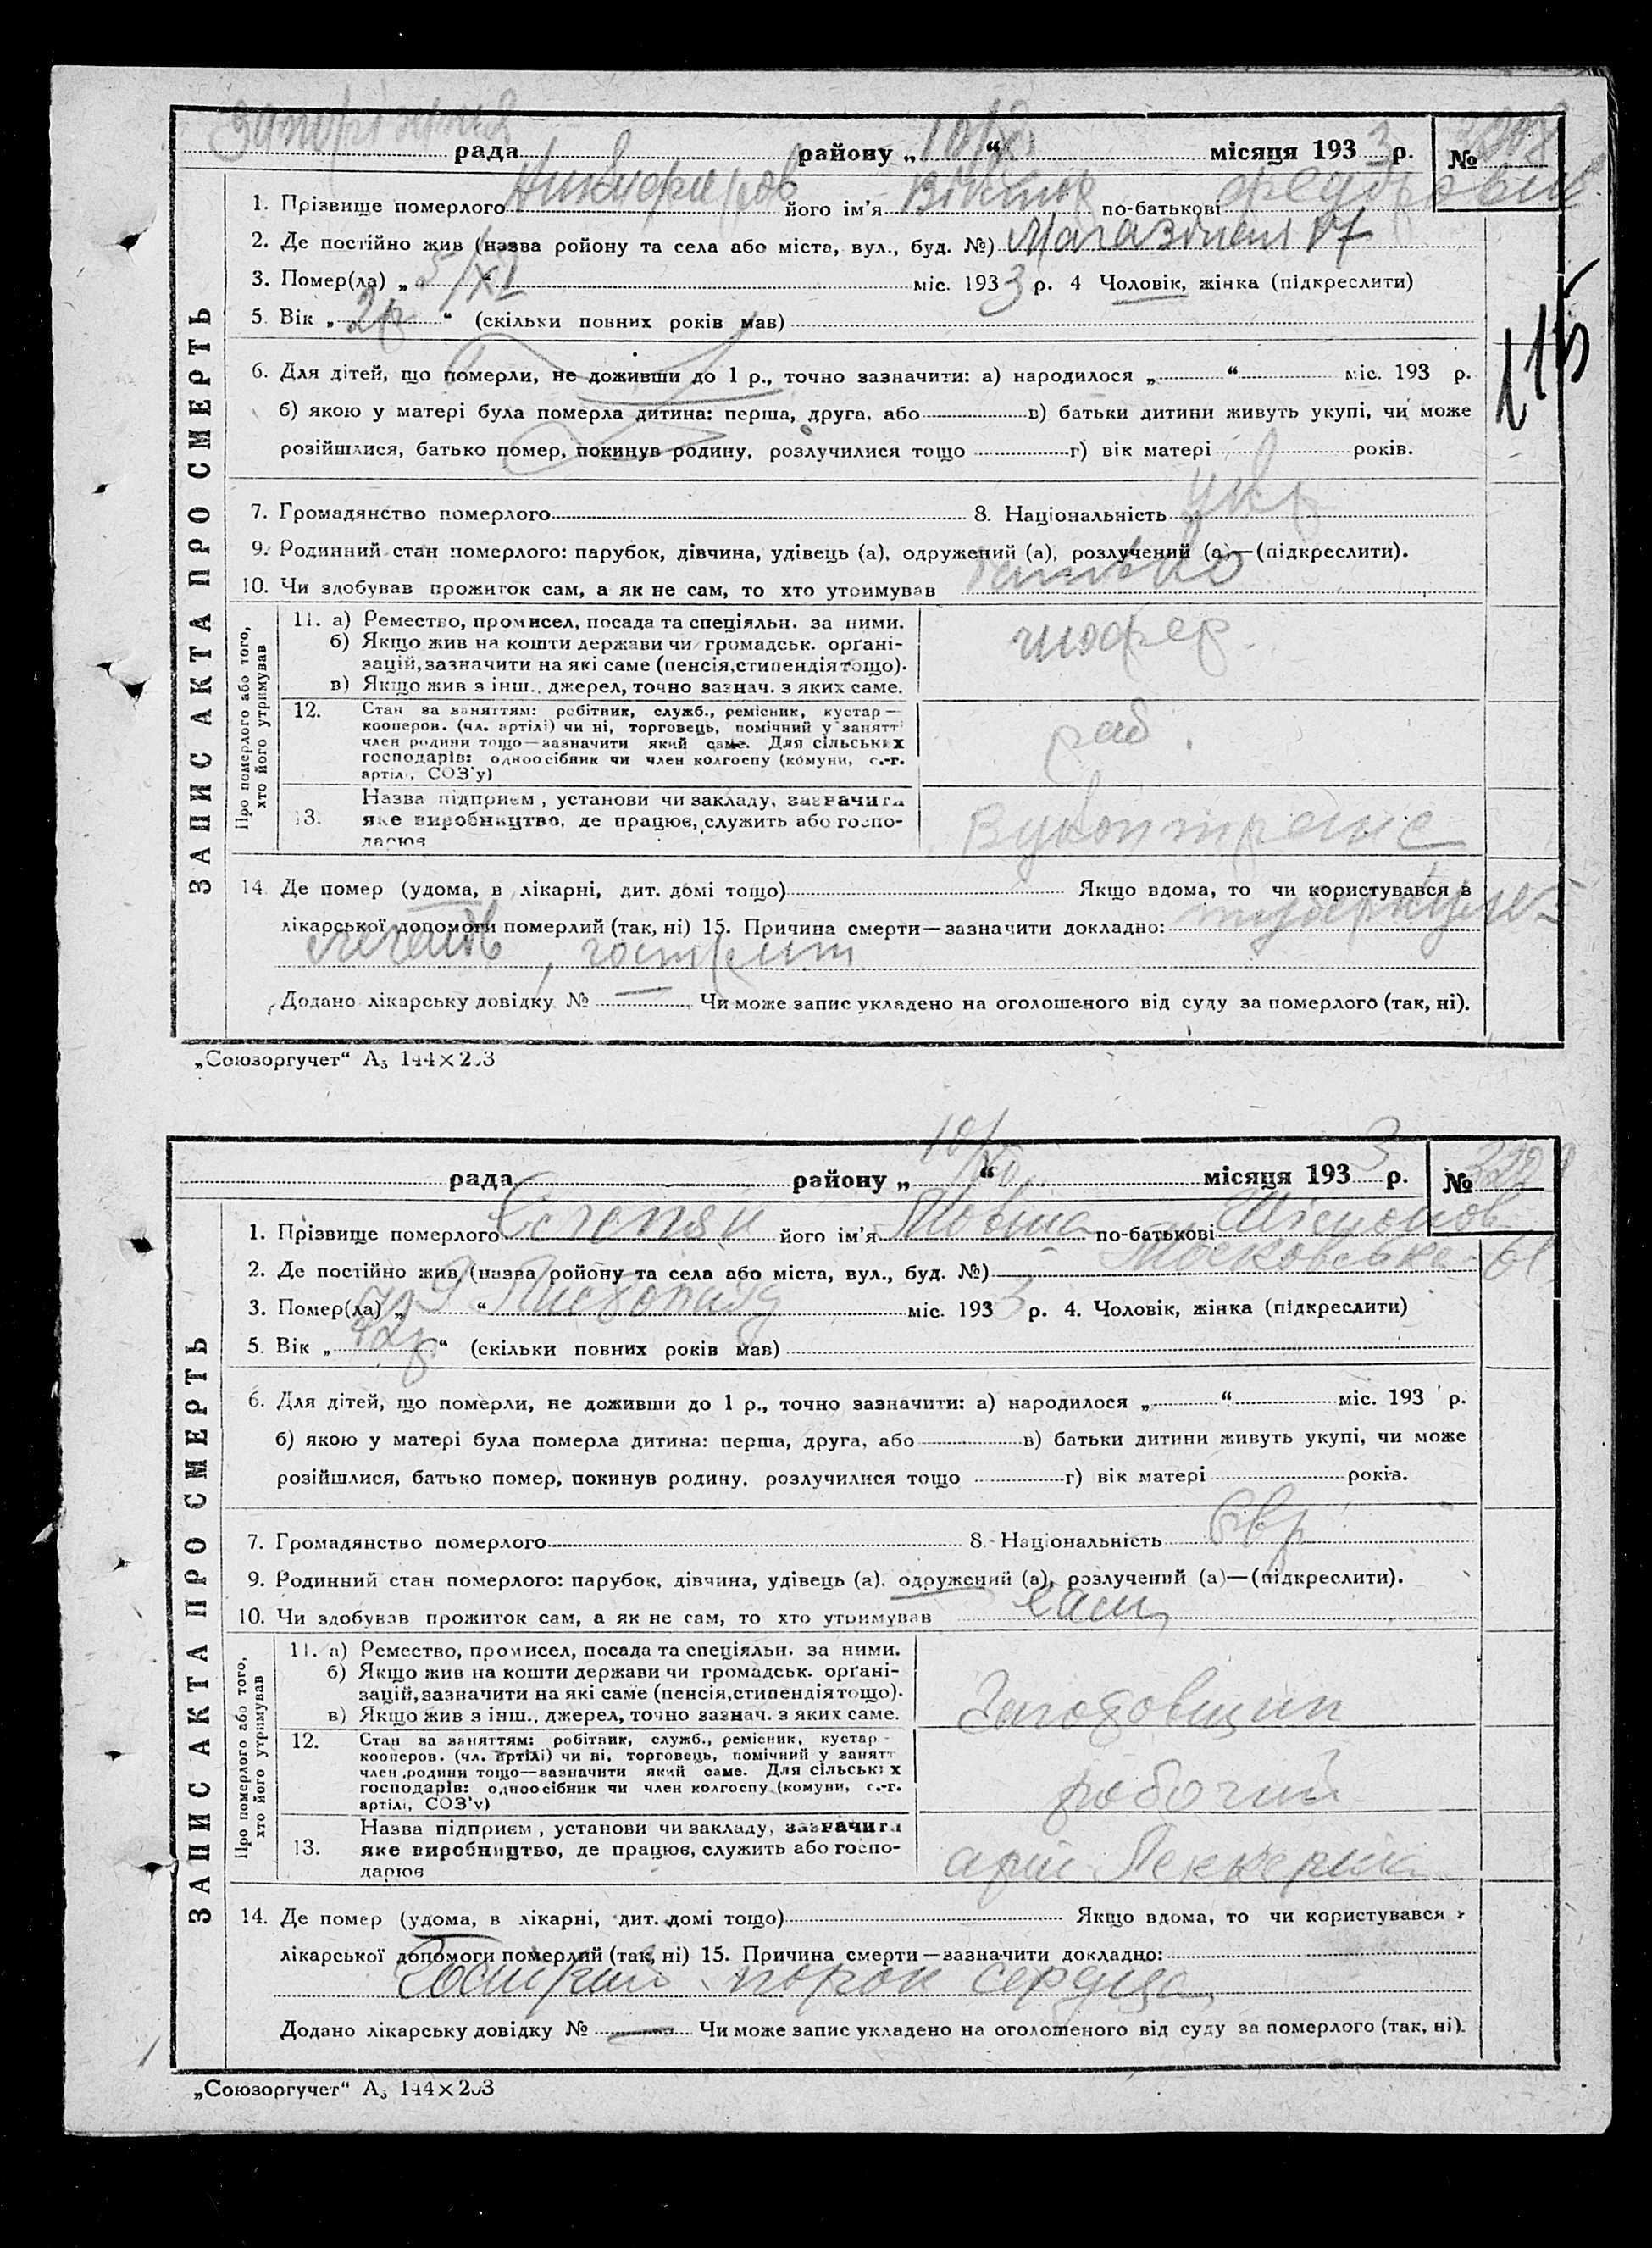 рада району „10/XI“ місяця 1933 р. №
1. Прізвище померлого Никифоров його ім’я Віктор по-батькові
2. Де постійно жив (назва ройону та села або міста, вул., буд. №) 17
3. Помер(ла) „5/XI“ міс. 1933 р. 4 Чоловік, жінка (підкреслити)
5. Вік „2р“ (скільки повних років мав)
6. Для дітей, що померли, не доживши до 1 р., точно зазначити: а) народилося „ “ міс. 193 р.
б) якою у матері була померла дитина: перша, друга, або в) батьки дитини живуть укупі, чи може
розійшлися, батько помер, покинув родину, розлучилися тощо г) вік матері років.
115
7. Громадянство померлого 8. Національність укр
9. Родинний стан померлого: парубок, дівчина, удівець (а), одружений (а), розлучений (а)—(підкреслити).
10. Чи здобував прожиток сам, а як не сам, то хто утримував батько
ЗАПИС АКТА ПРО СМЕРТЬ
Про померлого або того, хто його утримував
11. а) Ремество, промисел, посада та спеціяльн. за ними.
б) Якщо жив на кошти держави чи громадськ. орґані-
зацій, зазначити на які саме (пенсія, стипендія тощо).
в) Якщо жив з інш., джерел, точно зазнач. з яких саме.
шофер.
12. Стан за заняттям: робітник, служб., ремісник, кустар—
кооперов. (чл. артілі) чи ні, торговець, помічний у занятт
член родини тощо—зазначити який саме. Для сільських
господарів: одноосібник чи член колгоспу (комуни, с.-г.
артілі, СОЗ’у)
раб.
13. Назва підприєм, установи чи закладу, зазначити
яке виробництво, де працює, служить або госпо-
дарює
14. Де помер (удома, в лікарні, дит. домі тощо) Якщо вдома, то чи користувався з
лікарської допомоги померлий (так, ні) 15. Причина смерти—зазначити докладно:
Додано лікарську довідку № — Чи може запис укладено на оголошеного від суду за померлого (так, ні).
„Союзоргучет“ А₅ 144×203
рада району „10/XI“ місяця 1933 р. №
1. Прізвище померлого його ім’я по-батькові
2. Де постійно жив (назва ройону та села або міста, вул., буд. №) Московська 61
3. Помер(ла) „9“ Листопада міс. 1933 р. 4. Чоловік, жінка (підкреслити)
5. Вік „42р“ (скільки повних років мав)
6. Для дітей, що померли, не доживши до 1 р., точно зазначити: а) народилося „ “ міс. 193 р.
б) якою у матері була померла дитина: перша, друга, або в) батьки дитини живуть укупі, чи може
розійшлися, батько помер, покинув родину, розлучилися тощо г) вік матері років.
7. Громадянство померлого 8. Національність Євр
9. Родинний стан померлого: парубок, дівчина, удівець (а), одружений (а), розлучений (а)—(підкреслити).
10. Чи здобував прожиток сам, а як не сам, то хто утримував сам
ЗАПИС АКТА ПРО СМЕРТЬ
Про померлого або того, хто його утримував
11. а) Ремество, промисел, посада та спеціяльн. за ними.
б) Якщо жив на кошти держави чи громадськ. орґані-
зацій, зазначити на які саме (пенсія, стипендія тощо).
в) Якщо жив з інш., джерел, точно зазнач. з яких саме.
Заготовщик
12. Стан за заняттям: робітник, служб., ремісник, кустар-
кооперов. (чл. артілі) чи ні, торговець, помічний у занятт
член родини тощо—зазначити який саме. Для сільських
господарів: одноосібник чи член колгоспу (комуни, с.-г.
артілі, СОЗ’у)
робочий
13. Назва підприєм, установи чи закладу, зазначити
яке виробництво, де працює, служить або госпо-
дарює
14. Де помер (удома, в лікарні, дит. домі тощо) Якщо вдома, то чи користувався з
лікарської допомоги померлий (так, ні) 15. Причина смерти—зазначити докладно:
порок сердца
Додано лікарську довідку № — Чи може запис укладено на оголошеного від суду за померлого (так, ні).
„Союзоргучет“ А₅ 144×203